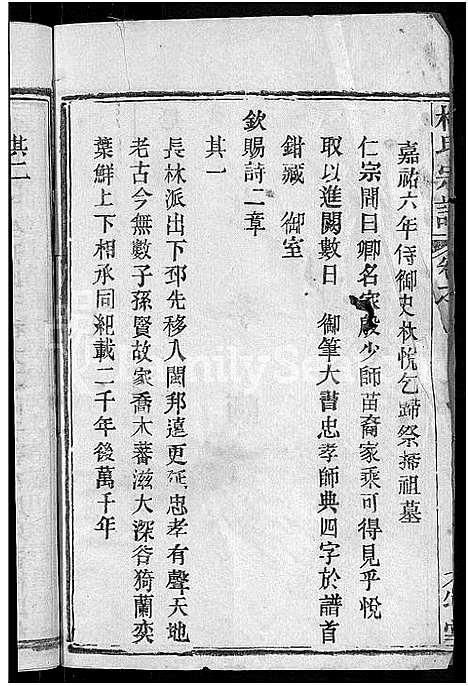 林氏宗譜
嘉祐六年侍御史林悅乞歸祭掃祖墓
仁宗問曰卿名家殷少師苗裔家乘可得見乎悅
取以進閱數日 御筆大書忠孝師典四字於譜首
鉗藏 御室
欽賜詩二章
其一
長林派出下邳先移入閩邦遠更延忠孝有聲天地
老古今無數子孫賢故家喬木蕃滋大深谷猗蘭奕
葉鮮上下相承同紀載二千年後萬千年
其二